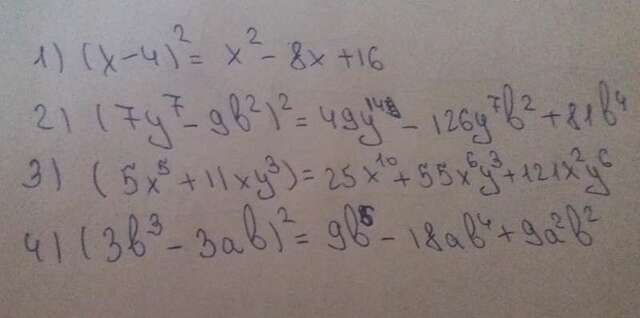 1) (x-4)² = x² - 8x + 16
2) (7y⁷ - 9b²)² = 49y¹⁴ - 126y⁷b² + 81b⁴
3) (5x⁵ + 11xy³) = 25x¹⁰ + 55x⁶y³ + 121x²y⁶
4) (3b³ - 3ab)² = 9b⁵ - 18ab⁴ + 9a²b²